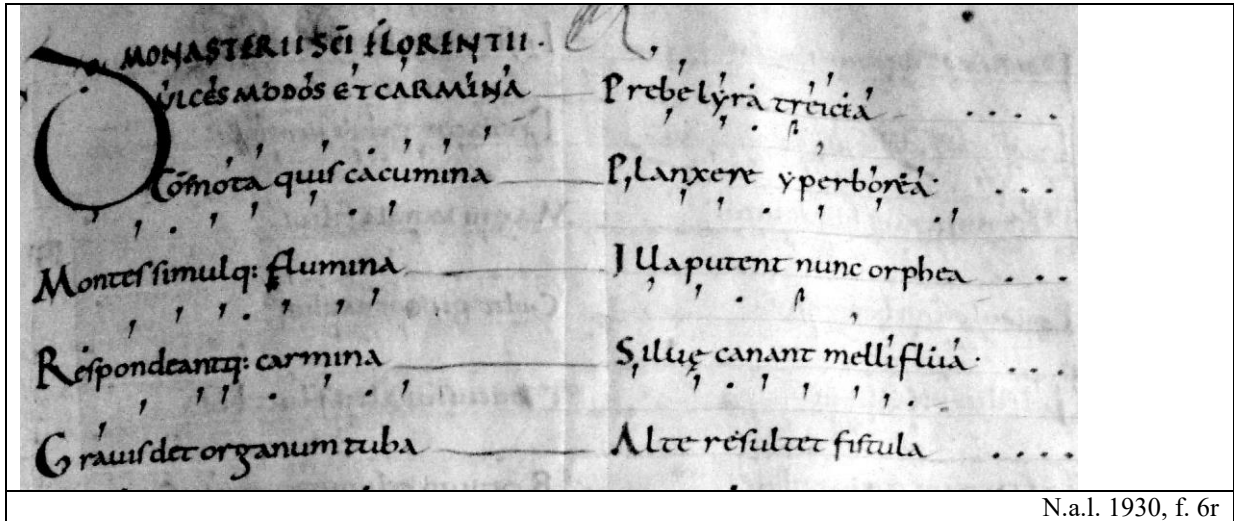 MONASTERII SC̄I FLORENTII ·
DULCES MODOS ET CARMINA Prebe lyra treicia . . . .
Cōmota quis cacumina Planxere yperborea · . . .
Montes simulq: flumina Illa putent nunc orphea . . .
Respondeantq: carmina Siluę canant melliflua · . . .
Grauis det organum tuba Alte resultet fistula . . . .
N.a.l. 1930, f. 6r